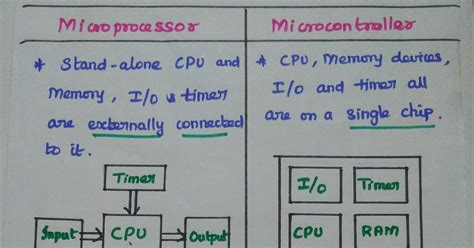 Microprocessor
* Stand-alone CPU and
Memory, I/o & timer
are externally connected
to it.
Timer
Input
CPU
Output
Microcontroller
* CPU, Memory devices,
I/o and timer all
are on a single chip.
I/o
Timer
CPU
RAM